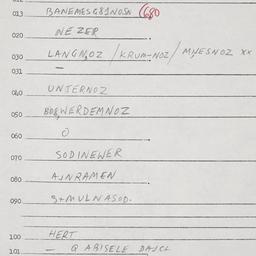 013 BANEMESG81NOSN (680
020 NEZER
030 LANGN,OZ / KRUM-NOZ / MJESNOZ xx
031 —
040 UNTERNOZ
050 WERDEMNOZ
060 O
070 SODINEWER
080 AJNRAMEN
090 S+MULNASOD.
100 HERT
101 — Q ABISELE DAJCL